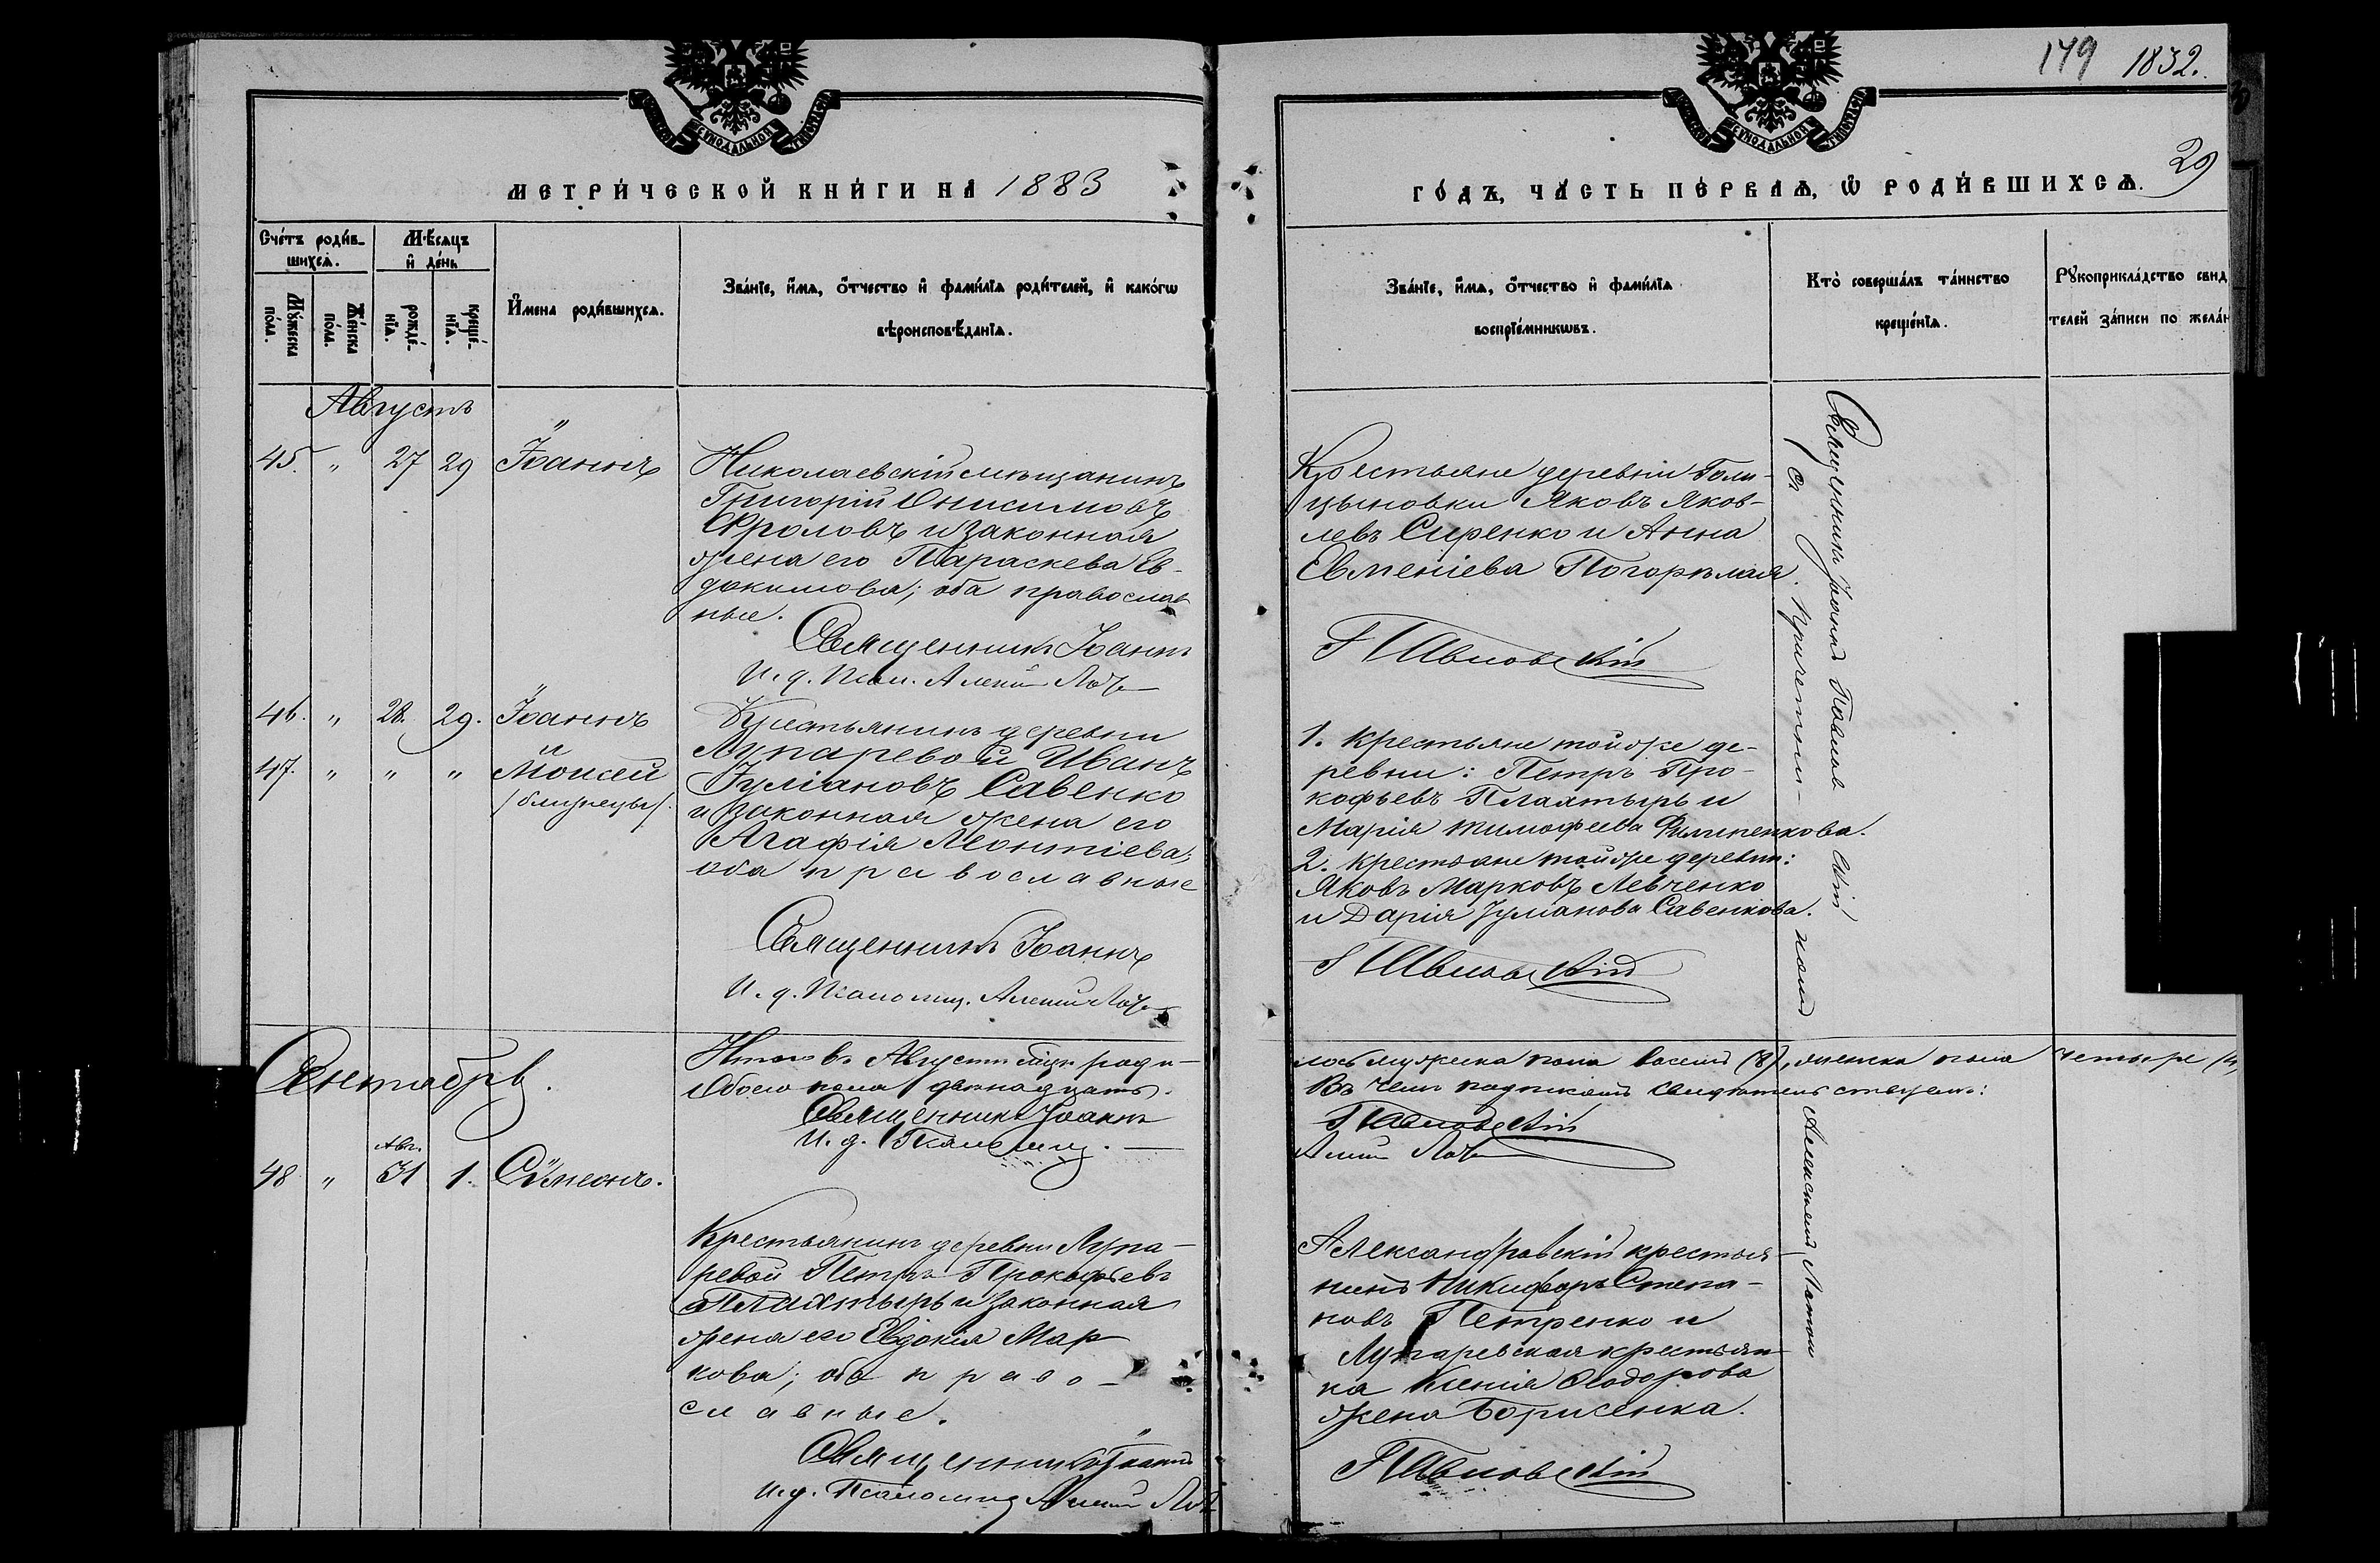 179 1832.
29
МЕТРИ́ЧЕСКОЙ КНИ́ГИ НА 1883
ГО́ДЪ, ЧА́СТЬ ПЕ́РВАѦ, Ѡ҆ РОДИ́ВШИХСѦ.
Сче́тъ роди́в-
шихсѧ.
Мѣ́сяцъ
и҆ де́нь
Мꙋ́жеска по́ла.
Же́нска по́ла.
рожде́-
нїѧ.
креще́-
нїѧ.
И҆мена роди́вшихсѧ.
Зва́нїе, и҆́мѧ, ѻ҆́тчество и҆ фами́лїѧ роди́телей, и҆ како́гѡ
вѣроисповѣ́данїѧ.
Зва́нїе, и҆́мѧ, ѻ҆́тчество и҆ фами́лїѧ
воспрїе́мникѡвъ.
Кто̀ соверша́лъ та́инство
креще́нїѧ.
Рꙋкоприкла́дство свид
телей за́писи по жела́н
Августъ
45. " 27 29 Іоаннъ
Николаевскій мѣщанинъ
Григорій Онисимовъ
Фроловъ и законная
жена его Параскева Ев-
докимова; оба православ
ные.
Священникъ Іоаннъ
И. д. Псал. Алексій
Крестьяне деревни Голи-
цыновки Яковъ Яков-
левъ Сиренко и Анна
Евменіева Погорѣлая.
Священникъ Іоаннъ
съ причетни-
46. " 28. 29. Іоаннъ
47. " " " Моисей
/близнецы/.
Крестьянинъ деревни
Лупаревой Иванъ
Іуліановъ Савенко
и законная жена его
Агафія Леонтіева;
оба православные
Священникъ Іоаннъ
И. д. Псаломщ. Алексій
1. Крестьяне той же де-
ревни: Петръ Про-
кофьевъ Плахтырь и
Марія Тимофеева Филипенкова.
2. Крестьяне той же деревни:
Яковъ Марковъ Левченко
и Дарія Іуліанова Савенкова.
Итого въ Августѣ мцѣ роди-
лось мужеска пола восемь (8), женска пола четыре (4)
Обоего пола двѣнадцать.
Въ чемъ подписомъ свидѣтельствуемъ:
Священникъ Іоаннъ
И. д. Псаломщ.
Сентябрь.
48 " Авг. 31 1. Сѵмеонъ.
Крестьянинъ деревни Лупа-
ревой Петръ Прокофьевъ
Плахтырь и законная
жена его Евдокія Мар
кова; оба право-
славные.
Священникъ Іоаннъ
И. д. Псаломщ Алексій
Александровскій крестья-
нинъ Никифоръ Степа-
новъ Петренко и
Лупаревская крестьян-
ка Ксенія Ѳеодорова
жена Борисенка.
Алексіемъ